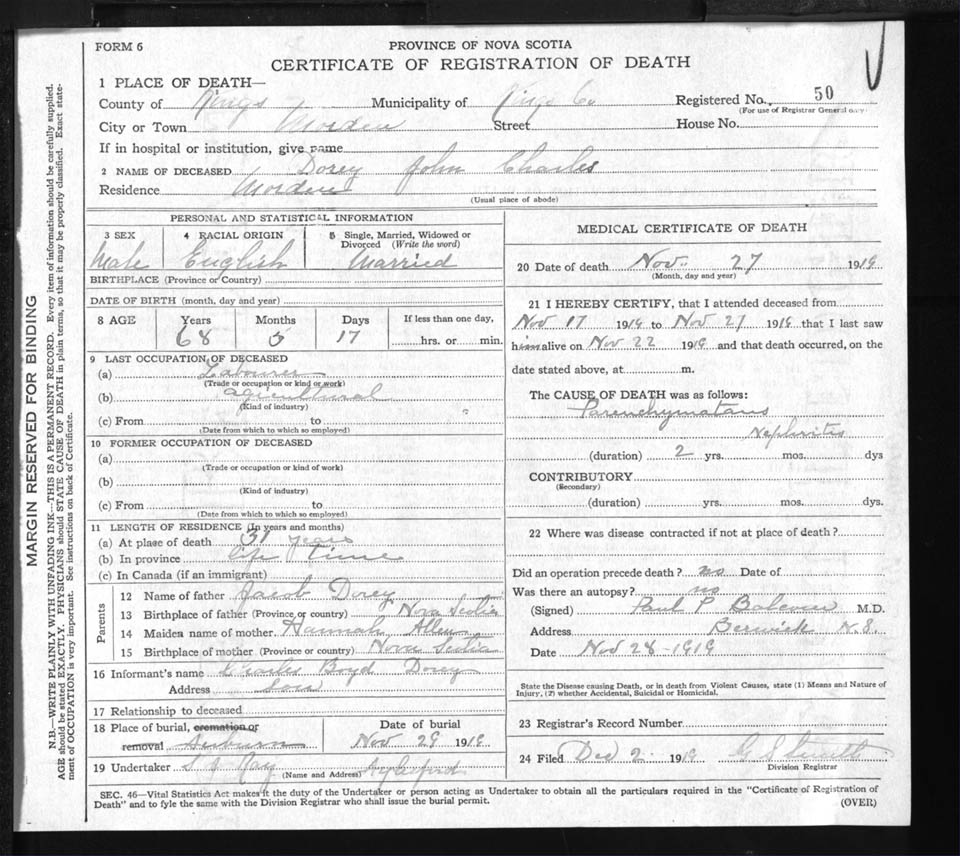 FORM 6
PROVINCE OF NOVA SCOTIA
CERTIFICATE OF REGISTRATION OF DEATH
1 PLACE OF DEATH—
County of Kings Municipality of Kings Co Registered No. 50
(For use of Registrar General only)
City or Town Morden Street House No.
If in hospital or institution, give name
2 NAME OF DECEASED Dorey John Charles
Residence Morden
(Usual place of abode)
PERSONAL AND STATISTICAL INFORMATION
3 SEX 4 RACIAL ORIGIN 5 Single, Married, Widowed or
Divorced (Write the word)
Male English Married
BIRTHPLACE (Province or Country)
DATE OF BIRTH (month, day and year)
8 AGE Years Months Days If less than one day,
68 5 17 hrs. or min.
9 LAST OCCUPATION OF DECEASED
(a) Labourer
(Trade or occupation or kind or work)
(b) agricultural
(Kind of industry)
(c) From to
(Date from which to which so employed)
10 FORMER OCCUPATION OF DECEASED
(a)
(Trade or occupation or kind of work)
(b)
(Kind of industry)
(c) From to
(Date from which to which so employed)
11 LENGTH OF RESIDENCE (In years and months)
(a) At place of death 31 years
(b) In province life time
(c) In Canada (if an immigrant)
Parents
12 Name of father Jacob Dorey
13 Birthplace of father (Province or country) Nova Scotia
14 Maiden name of mother Hannah Allen
15 Birthplace of mother (Province or country) Nova Scotia
16 Informant's name Charles Boyd Dorey
Address Son
17 Relationship to deceased
18 Place of burial, cremation or Date of burial
removal Auburn Nov 29 1919
19 Undertaker Aylesford
(Name and Address)
MEDICAL CERTIFICATE OF DEATH
20 Date of death Nov. 27 1919
(Month, day and year)
21 I HEREBY CERTIFY, that I attended deceased from
Nov 17 1919 to Nov 27 1919 that I last saw
him alive on Nov 22 1919 and that death occurred, on the
date stated above, at m.
The CAUSE OF DEATH was as follows:
Parenchymatous
Nephritis
(duration) 2 yrs. mos. dys
CONTRIBUTORY
(Secondary)
(duration) yrs. mos. dys.
22 Where was disease contracted if not at place of death?
Did an operation precede death? no Date of
Was there an autopsy? no
(Signed) Paul P Balcom M.D.
Address Berwick N.S.
Date Nov 28-1919
State the Disease causing Death, or in death from Violent Causes, state (1) Means and Nature of
Injury, (2) whether Accidental, Suicidal or Homicidal.
23 Registrar's Record Number
24 Filed Dec 2 1919
Division Registrar
SEC. 46—Vital Statistics Act makes it the duty of the Undertaker or person acting as Undertaker to obtain all the particulars required in the "Certificate of Registration of
Death" and to fyle the same with the Division Registrar who shall issue the burial permit.
(OVER)
MARGIN RESERVED FOR BINDING
N.B.—WRITE PLAINLY WITH UNFADING INK—THIS IS A PERMANENT RECORD. Every item of information should be carefully supplied.
AGE should be stated EXACTLY. PHYSICIANS should STATE CAUSE OF DEATH in plain terms, so that it may be properly classified. Exact state-
ment of OCCUPATION is very important. See instructions on back of Certificate.